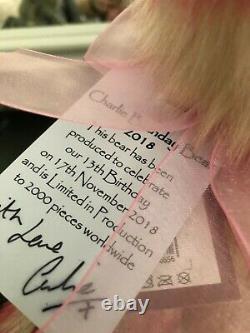 Charlie Birthday Bear
2018
This bear has been
produced to celebrate
our 13th Birthday
on 17th November 2018
and is Limited in Production
to 2000 pieces worldwide
With Love